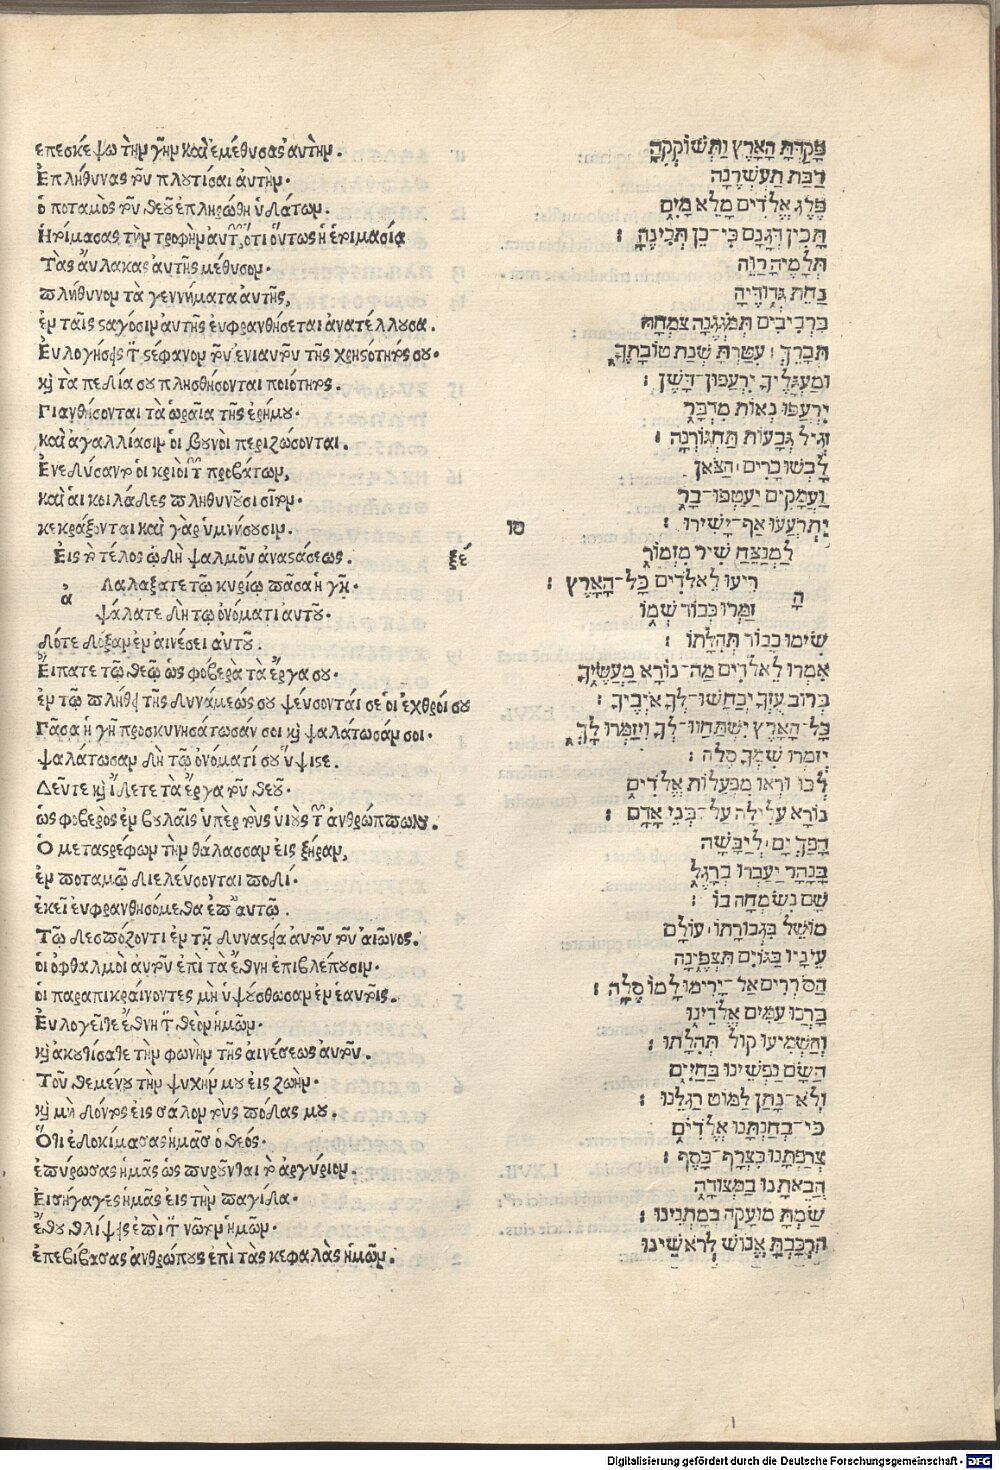 ἐπεσκέψω τὴν γῆν καὶ ἐμέθυσας ἀυτὴν.
Ἐπλήθυνας τοῦ πλουτίσαι ἀυτὴν.
ὁ ποταμὸς τοῦ θεοῦ ἐπληρώθη ὑδάτων.
Ητοίμασας τὴν τροφὴν ἀυτῶν, ὅτι ὅυτως ἡ ἑτοιμασία
Τὰς ἄυλακας ἀυτῆς μέθυσον.
πλήθυνον τὰ γεννήματα ἀυτῆς,
ἐν ταῖς σαγόσιν ἀυτῆς ἐυφρανθήσεται ἀνατέλλουσα.
Ἐυλογήσεις τὸν στέφανον τοῦ ἐνιαυτοῦ τῆς χρηστότητός σου.
καὶ τὰ πεδία σου πλησθήσονται ποιότητος.
Πιανθήσονται τὰ ὡραῖα τῆς ἐρήμου.
καὶ ἀγαλλίασιν ὁι βουνὸι περιζώσονται.
Ἐνεδύσαντο ὁι κριὸι τῶν προβάτων,
καὶ ἁι κοιλάδες πληθυνοῦσι σῖτον.
κεκράξονται καὶ γὰρ ὑμνήσουσιν.
Ἐις τὸ τέλος ὠδὴ ψαλμοῦ ἀναστάσεως. ξέ
ἀ Αλαλάξατε τῷ κυρίῳ πᾶσα ἡ γῆ.
ψάλατε δὴ τῷ ὀνόματι ἀυτοῦ.
Δότε δόξαν ἐν αἰνέσει ἀυτοῦ.
Ἔιπατε τῷ θεῷ ὡς φοβερὰ τὰ ἔργα σου.
ἐν τῷ πλήθει τῆς δυνάμεώς σου ψέυσονταί σε ὁι ἐχθροί σου
Πᾶσα ἡ γῆ προσκυνησάτωσάν σοι καὶ ψαλάτωσάν σοι.
ψαλάτωσαν δὴ τῷ ὀνόματί σου ὕψιστε.
Δεῦτε καὶ ἴδετε τὰ ἔργα τοῦ θεοῦ.
ὡς φοβερὸς ἐν βουλαῖς ὑπὲρ τοὺς υἱοὺς τῶν ἀνθρώπων.
Ὁ μεταστρέφων τὴν θάλασσαν ἐις ξηράν,
ἐν ποταμῷ διελέυσονται ποδί.
ἐκεῖ ἐυφρανθησόμεθα ἐπ' ἀυτῷ.
Τῷ δεσπόζοντι ἐν τῇ δυναστείᾳ ἀυτοῦ τοῦ αἰῶνος.
ὁι ὀφθαλμὸι ἀυτοῦ ἐπὶ τὰ ἔθνη ἐπιβλέπουσιν.
ὁι παραπικράινοντες μὴ ὑψούσθωσαν ἐν ἑαυτοῖς.
Ἐυλογεῖτε ἔθνη τὸν θεὸν ἡμῶν.
καὶ ἀκουτίσατε τὴν φωνὴν τῆς αἰνέσεως ἀυτοῦ.
Τοῦ θεμένου τὴν ψυχήν μου ἐις ζωὴν.
καὶ μὴ δόντος ἐις σάλον τοὺς πόδας μου.
Ὅτι ἐδοκίμασας ἡμᾶς ὁ θεός.
ἐπύρωσας ἡμᾶς ὡς πυροῦται τὸ ἀργύριον.
Ἐισήγαγες ἡμᾶς ἐις τὴν παγίδα.
ἔθου θλίψεις ἐπὶ τὸν νῶτον ἡμῶν.
ἐπεβίβασας ἀνθρώπους ἐπὶ τὰς κεφαλὰς ἡμῶν.
פָּקַדְתָּ הָאָרֶץ וַתְּשׁוֹקְקֶהָ
רַבַּת תַּעְשְׁרֶנָּה
פֶּלֶג אֱלֹדִים מָלֵא מָיִם
תָּכִין דְּגָנָם כִּי־כֵן תְּכִינֶהָ׃
תְּלָמֶיהָ רַוֵּה
נַחֵת גְּדוּדֶיהָ
בִּרְבִיבִים תְּמֹגְגֶנָּה צִמְחָהּ
תְּבָרֵךְ׃ עִטַּרְתָּ שְׁנַת טוֹבָתֶךָ
וּמַעְגָּלֶיךָ יִרְעֲפוּן דָּשֶׁן׃
יִרְעֲפוּ נְאוֹת מִדְבָּר
וְגִיל גְּבָעוֹת תַּחְגּוֹרְנָה׃
לָבְשׁוּ כָרִים הַצֹּאן
וַעֲמָקִים יַעַטְפוּ־בָר
יִתְרֹעֲעוּ אַף־יָשִׁירוּ׃ סו
לַמְנַצֵּחַ שִׁיר מִזְמוֹר
הָ רִיעוּ לֵאלֹדִים כָּל־הָאָרֶץ׃
זַמְּרוּ כְבוֹד שְׁמוֹ
שִׂימוּ כָבוֹד תְּהִלָּתוֹ׃
אִמְרוּ לֵאלֹדִים מַה־נּוֹרָא מַעֲשֶׂיךָ
בְּרוֹב עֻזְּךָ יְכַחֲשׁוּ־לְךָ אֹיְבֶיךָ׃
כָּל־הָאָרֶץ יִשְׁתַּחֲווּ־לְךָ וִיזַמְּרוּ לָךְ
יְזַמְּרוּ שִׁמְךָ סֶלָה׃
לְכוּ וּרְאוּ מִפְעֲלוֹת אֱלֹדִים
נוֹרָא עֲלִילָה עַל־בְּנֵי אָדָם׃
הָפַךְ יָם לְיַבָּשָׁה
בַּנָּהָר יַעַבְרוּ בְרָגֶל
שָׁם נִשְׂמְחָה בּוֹ׃
מוֹשֵׁל בִּגְבוּרָתוֹ עוֹלָם
עֵינָיו בַּגּוֹיִם תִּצְפֶּינָה
הַסֹּרְרִים אַל־יָרִימוּ לָמוֹ סֶלָה׃
בָּרְכוּ עַמִּים אֱלֹדֵינוּ
וְהַשְׁמִיעוּ קוֹל תְּהִלָּתוֹ׃
הַשָּׂם נַפְשֵׁינוּ בַּחַיִּים
וְלֹא־נָתַן לַמּוֹט רַגְלֵנוּ׃
כִּי־בְחַנְתָּנוּ אֱלֹדִים
צְרַפְתָּנוּ כִּצְרָף־כָּסֶף׃
הֲבֵאתָנוּ בַמְּצוּדָה
שַׂמְתָּ מוּעָקָה בְמָתְנֵינוּ׃
הִרְכַּבְתָּ אֱנוֹשׁ לְרֹאשֵׁינוּ
Digitalisierung gefördert durch die Deutsche Forschungsgemeinschaft - DFG